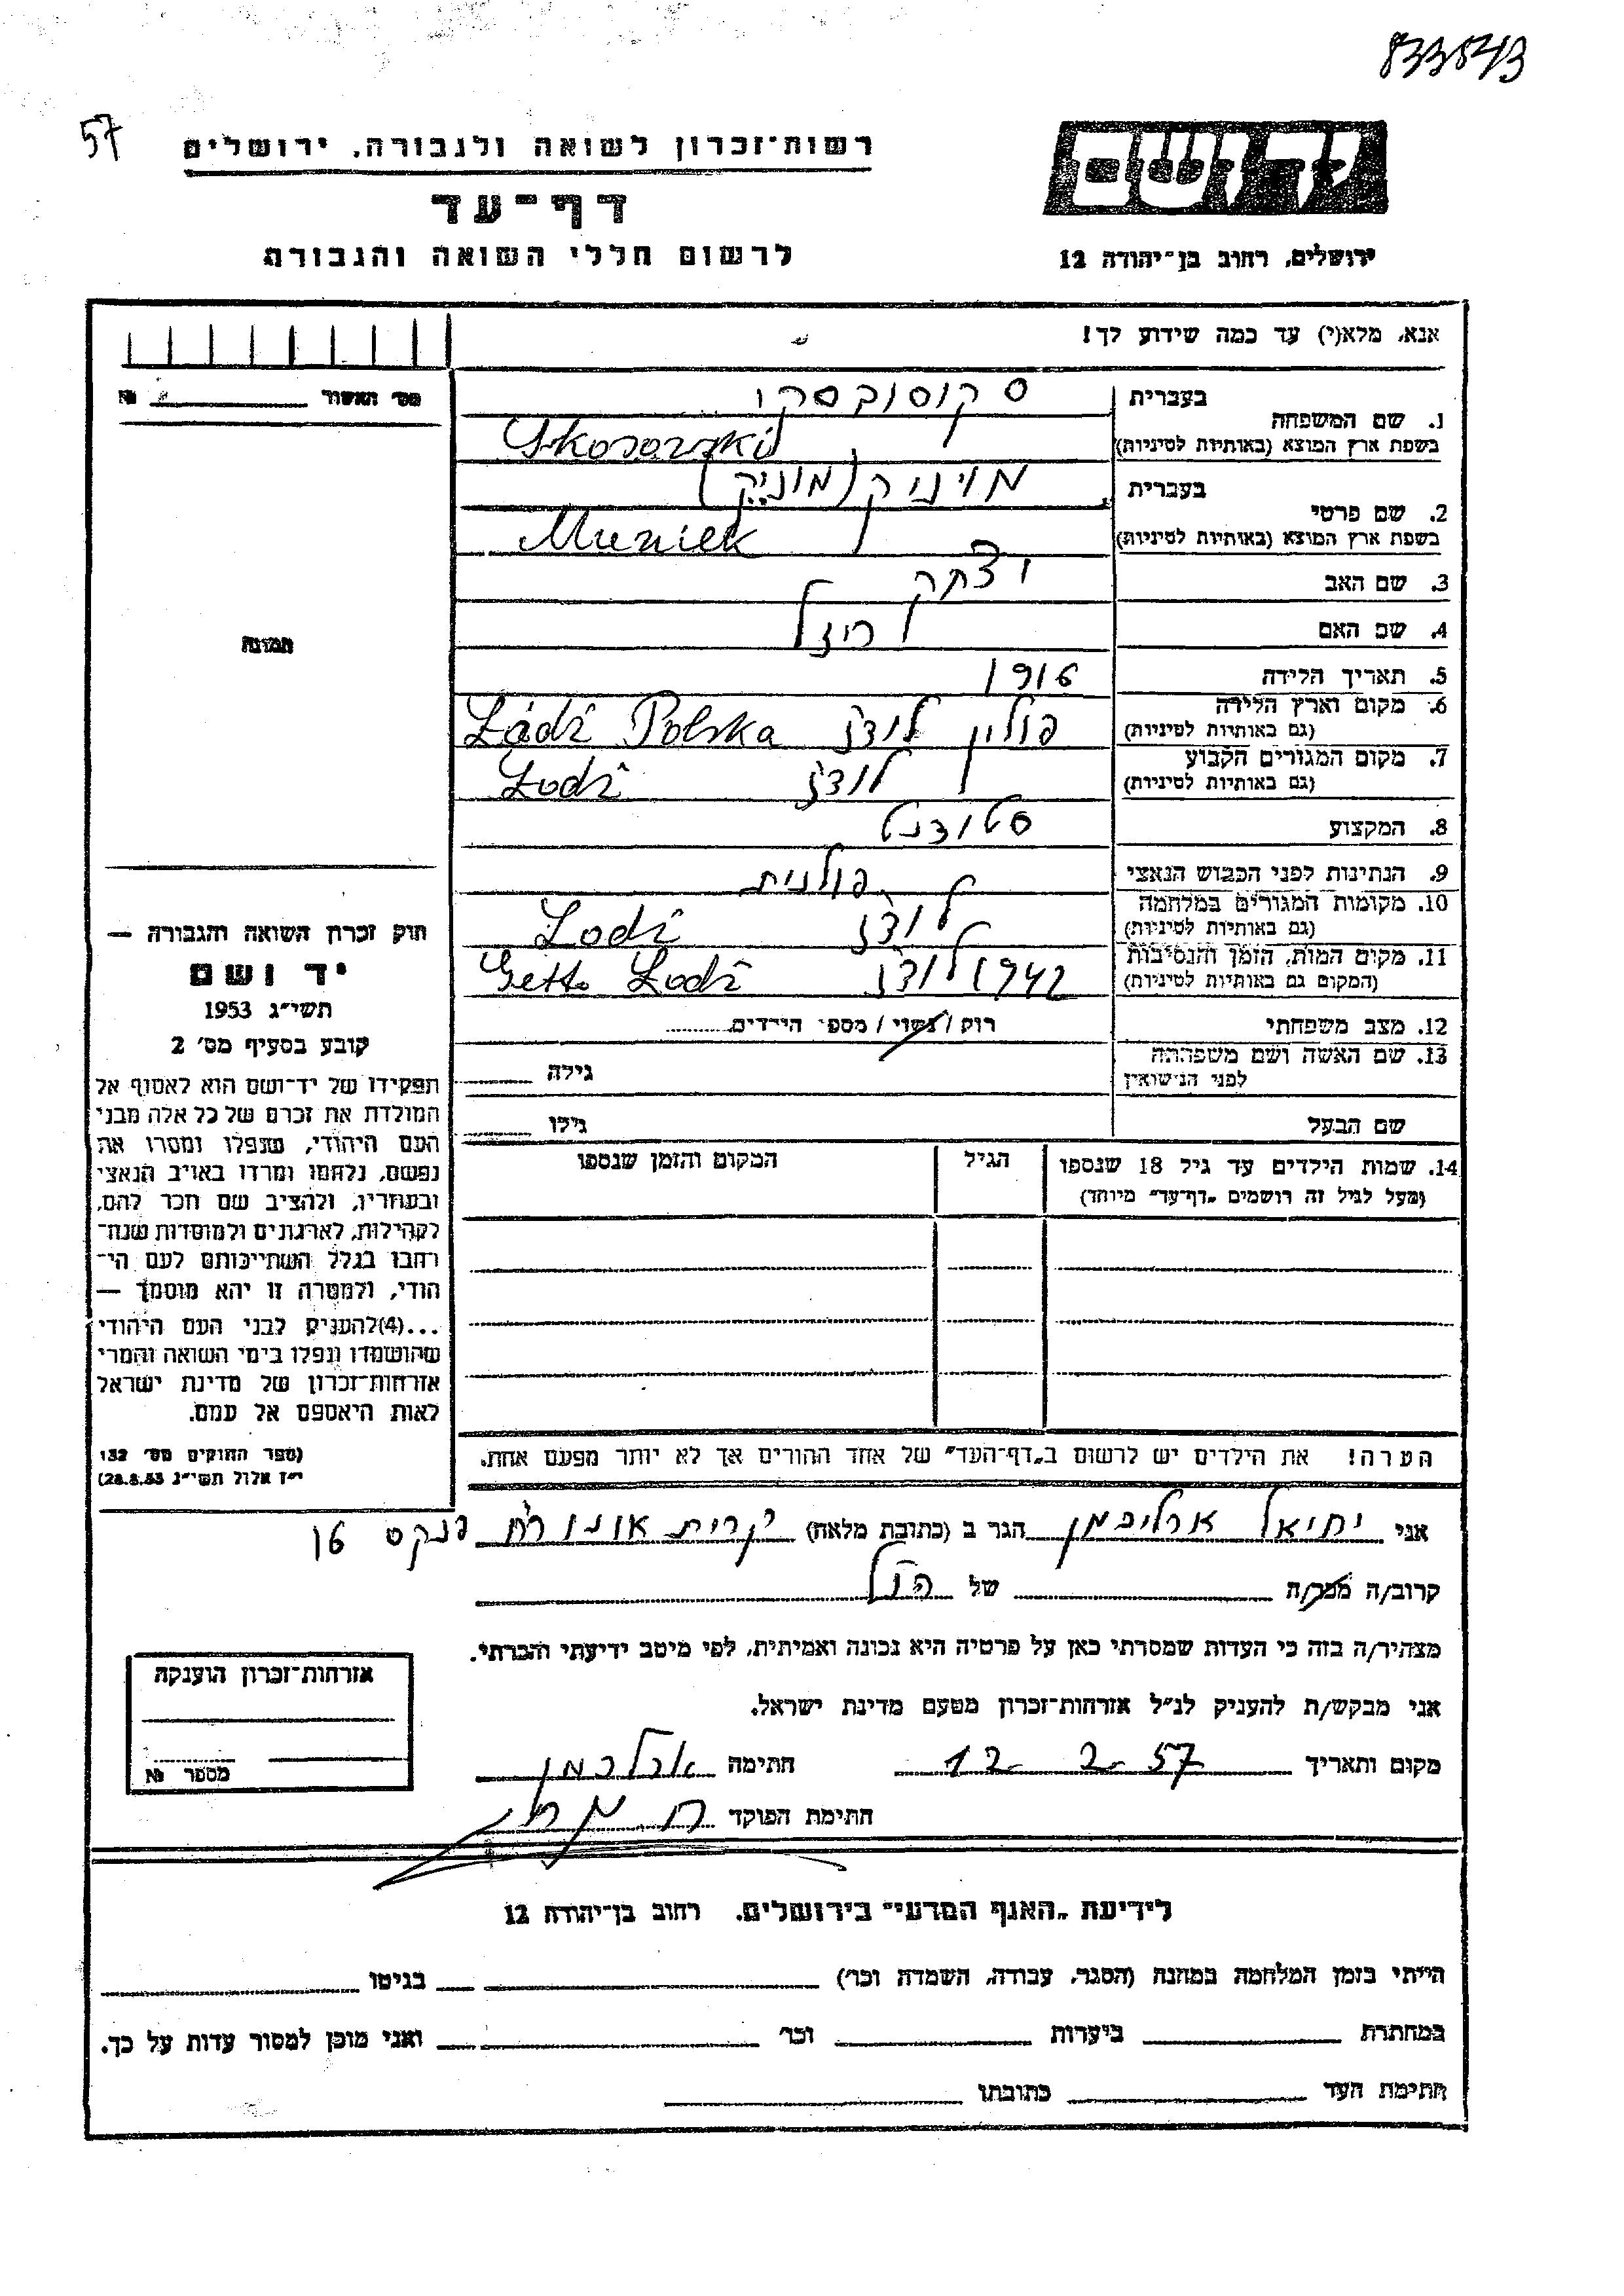 833543
57
רשות־זכרון לשואה ולגבורה, ירושלים
יד ושם
דף־עד
לרשום חללי השואה והגבורה
ירושלים, רחוב בן־יהודה 12
אנא, מלא(י) עד כמה שידוע לך!
מס׳ האשור № 
1. שם המשפחה
בעברית סקוסובסקי
בשפת ארץ המוצא (באותיות לטיניות) Skosowski
2. שם פרטי
בעברית מויניק (מוניק)
בשפת ארץ המוצא (באותיות לטיניות) Muniek
3. שם האב יצחק
תמונה
4. שם האם רייזל
5. תאריך הלידה 1916
6. מקום וארץ הלידה פולין לודז Łódź Polska
(גם באותיות לטיניות)
7. מקום המגורים הקבוע לודז Łodź
(גם באותיות לטיניות)
8. המקצוע סטודנט
9. הנתינות לפני הכבוש הנאצי פולנית
10. מקומות המגורים במלחמה לודז Lodź
(גם באותיות לטיניות)
11. מקום המות, הזמן והנסיבות 1942 לודז Getto Lodź
(המקום גם באותיות לטיניות)
12. מצב משפחתי רוק / נשוי / מספר הילדים
13. שם האשה ושם משפחתה
לפני הנישואין גילה
שם הבעל גילו
14. שמות הילדים עד גיל 18 שנספו הגיל המקום והזמן שנספו
(מעל לגיל זה רושמים „דף־עד" מיוחד)
חוק זכרון השואה והגבורה —
יד ושם
תשי״ג 1953
קובע בסעיף מס׳ 2
תפקידו של יד־ושם הוא לאסוף אל
המולדת את זכרם של כל אלה מבני
העם היהודי, שנפלו ומסרו את
נפשם, נלחמו ומרדו באויב הנאצי
ובעוזריו, ולהציב שם וזכר להם,
לקהילות, לארגונים ולמוסדות שנח־
רבו בגלל השתייכותם לעם הי־
הודי, ולמטרה זו יהא מוסמך —
...(4)להעניק לבני העם היהודי
שהושמדו ונפלו בימי השואה והמרי
אזרחות־זכרון של מדינת ישראל
לאות היאספם אל עמם.
(ספר החוקים מס׳ 132
י״ז אלול תשי״ג 28.8.53)
הערה! את הילדים יש לרשום ב„דף־העד" של אחד ההורים אך לא יותר מפעם אחת.
אני יחיאל ארליכמן הגר ב (כתובת מלאה) קרית אונו רח פנקס 16
קרוב/ה מכר/ה של הנ"ל
מצהיר/ה בזה כי העדות שמסרתי כאן על פרטיה היא נכונה ואמיתית, לפי מיטב ידיעתי והכרתי.
אני מבקש/ת להעניק לנ״ל אזרחות־זכרון מטעם מדינת ישראל.
מקום ותאריך 12-2-57 חתימה ארלכמן
חתימת הפוקד
אזרחות־זכרון הוענקה
מספר №
לידיעת „האגף המדעי" בירושלים. רחוב בן־יהודה 12
הייתי בזמן המלחמה במחנה (הסגר, עבודה, השמדה וכו׳) בגיטו
במחתרת ביערות וכו׳ ואני מוכן למסור עדות על כך.
חתימת העד כתובתו